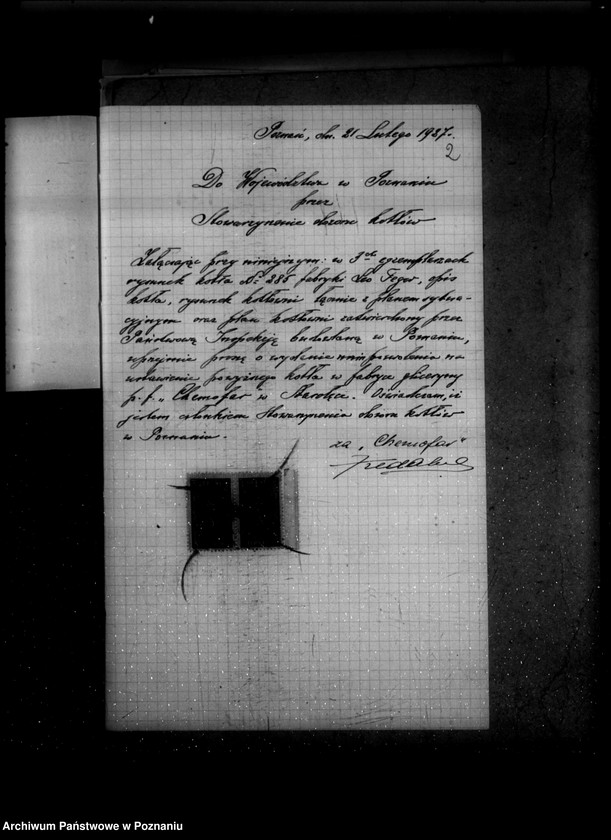 Poznań, dn. 21 Lutego 1927.
2
Do Województwa w Poznaniu
przez
Stowarzyszenie dozoru kotłów
Załączając przy niniejszym: w 3ch egzemplarzach
rysunek kotła No 285 fabryki Leo Feger, opis
kotła, rysunek kotłowni łącznie z planem sytua-
cyjnym oraz plan kotłowni zatwierdzony przez
Państwową Inspekcję budowlaną w Poznaniu,
uprzejmie proszę o wydanie mi pozwolenia na
ustawienie powyższego kotła w fabryce gliceryny
p. f. „Chemofar" w Starołęce. Oświadczam, iż
jestem członkiem Stowarzyszenia dozoru kotłów
w Poznaniu.
za „Chemofar"
Archiwum Państwowe w Poznaniu